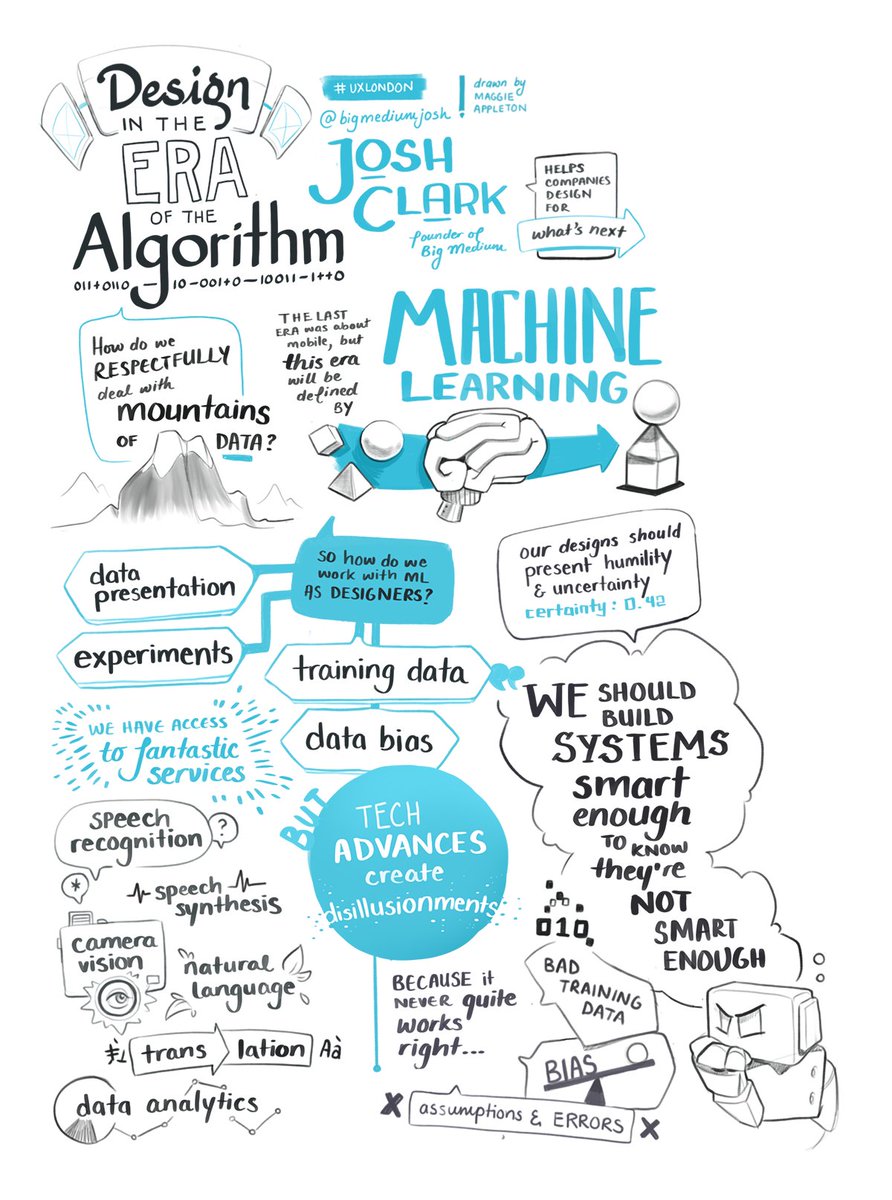 Design
IN THE
ERA
OF THE
Algorithm
# UXLONDON
@bigmediumjosh
drawn by
MAGGIE
APPLETON
JOSH
CLARK
founder of
Big Medium
HELPS
COMPANIES
DESIGN
FOR
what's next
How do we
RESPECTFULLY
deal with
mountains
OF DATA?
THE LAST
ERA was about
mobile, but
this era
will be
defined
BY
MACHINE
LEARNING
so how do we
work with ML
AS DESIGNERS?
data
presentation
experiments
training data
data bias
our designs should
present humility
& uncertainty
certainty: 0.42
WE SHOULD
BUILD
SYSTEMS
smart
enough
TO KNOW
they're
NOT
SMART
ENOUGH
WE HAVE ACCESS
to fantastic
services
speech
recognition
?
*
speech
synthesis
camera
vision
natural
language
trans lation Aà
data analytics
BUT
TECH
ADVANCES
create
disillusionments
BECAUSE it
NEVER quite
works
right...
010
BAD
TRAINING
DATA
BIAS
assumptions & ERRORS